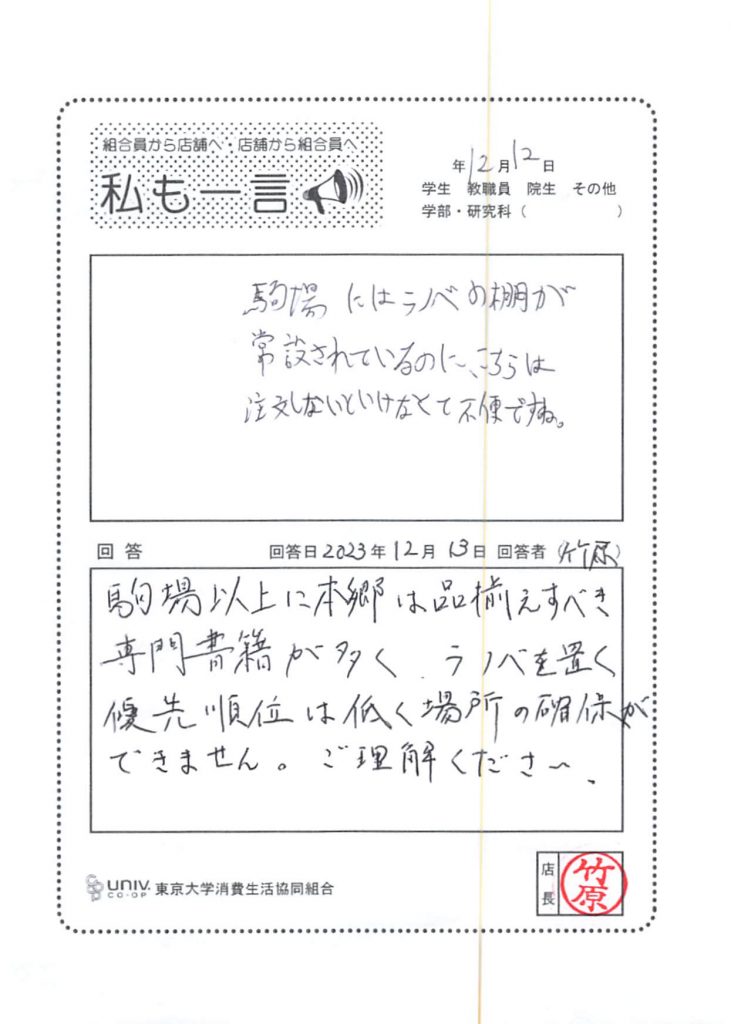 組合員から店舗へ・店舗から組合員へ
私も一言
年12月12日
学生 教職員 院生 その他
学部・研究科( )
駒場にはラノベの棚が
常設されているのに、こちらは
注文しないといけなくて不便ですね。
回答 回答日2023年12月13日 回答者(竹原)
駒場以上に本郷は品揃えすべき
専門書籍が多く、ラノベを置く
優先順位は低く場所の確保が
できません。ご理解ください。
UNIV. CO-OP 東京大学消費生活協同組合
店長 竹原